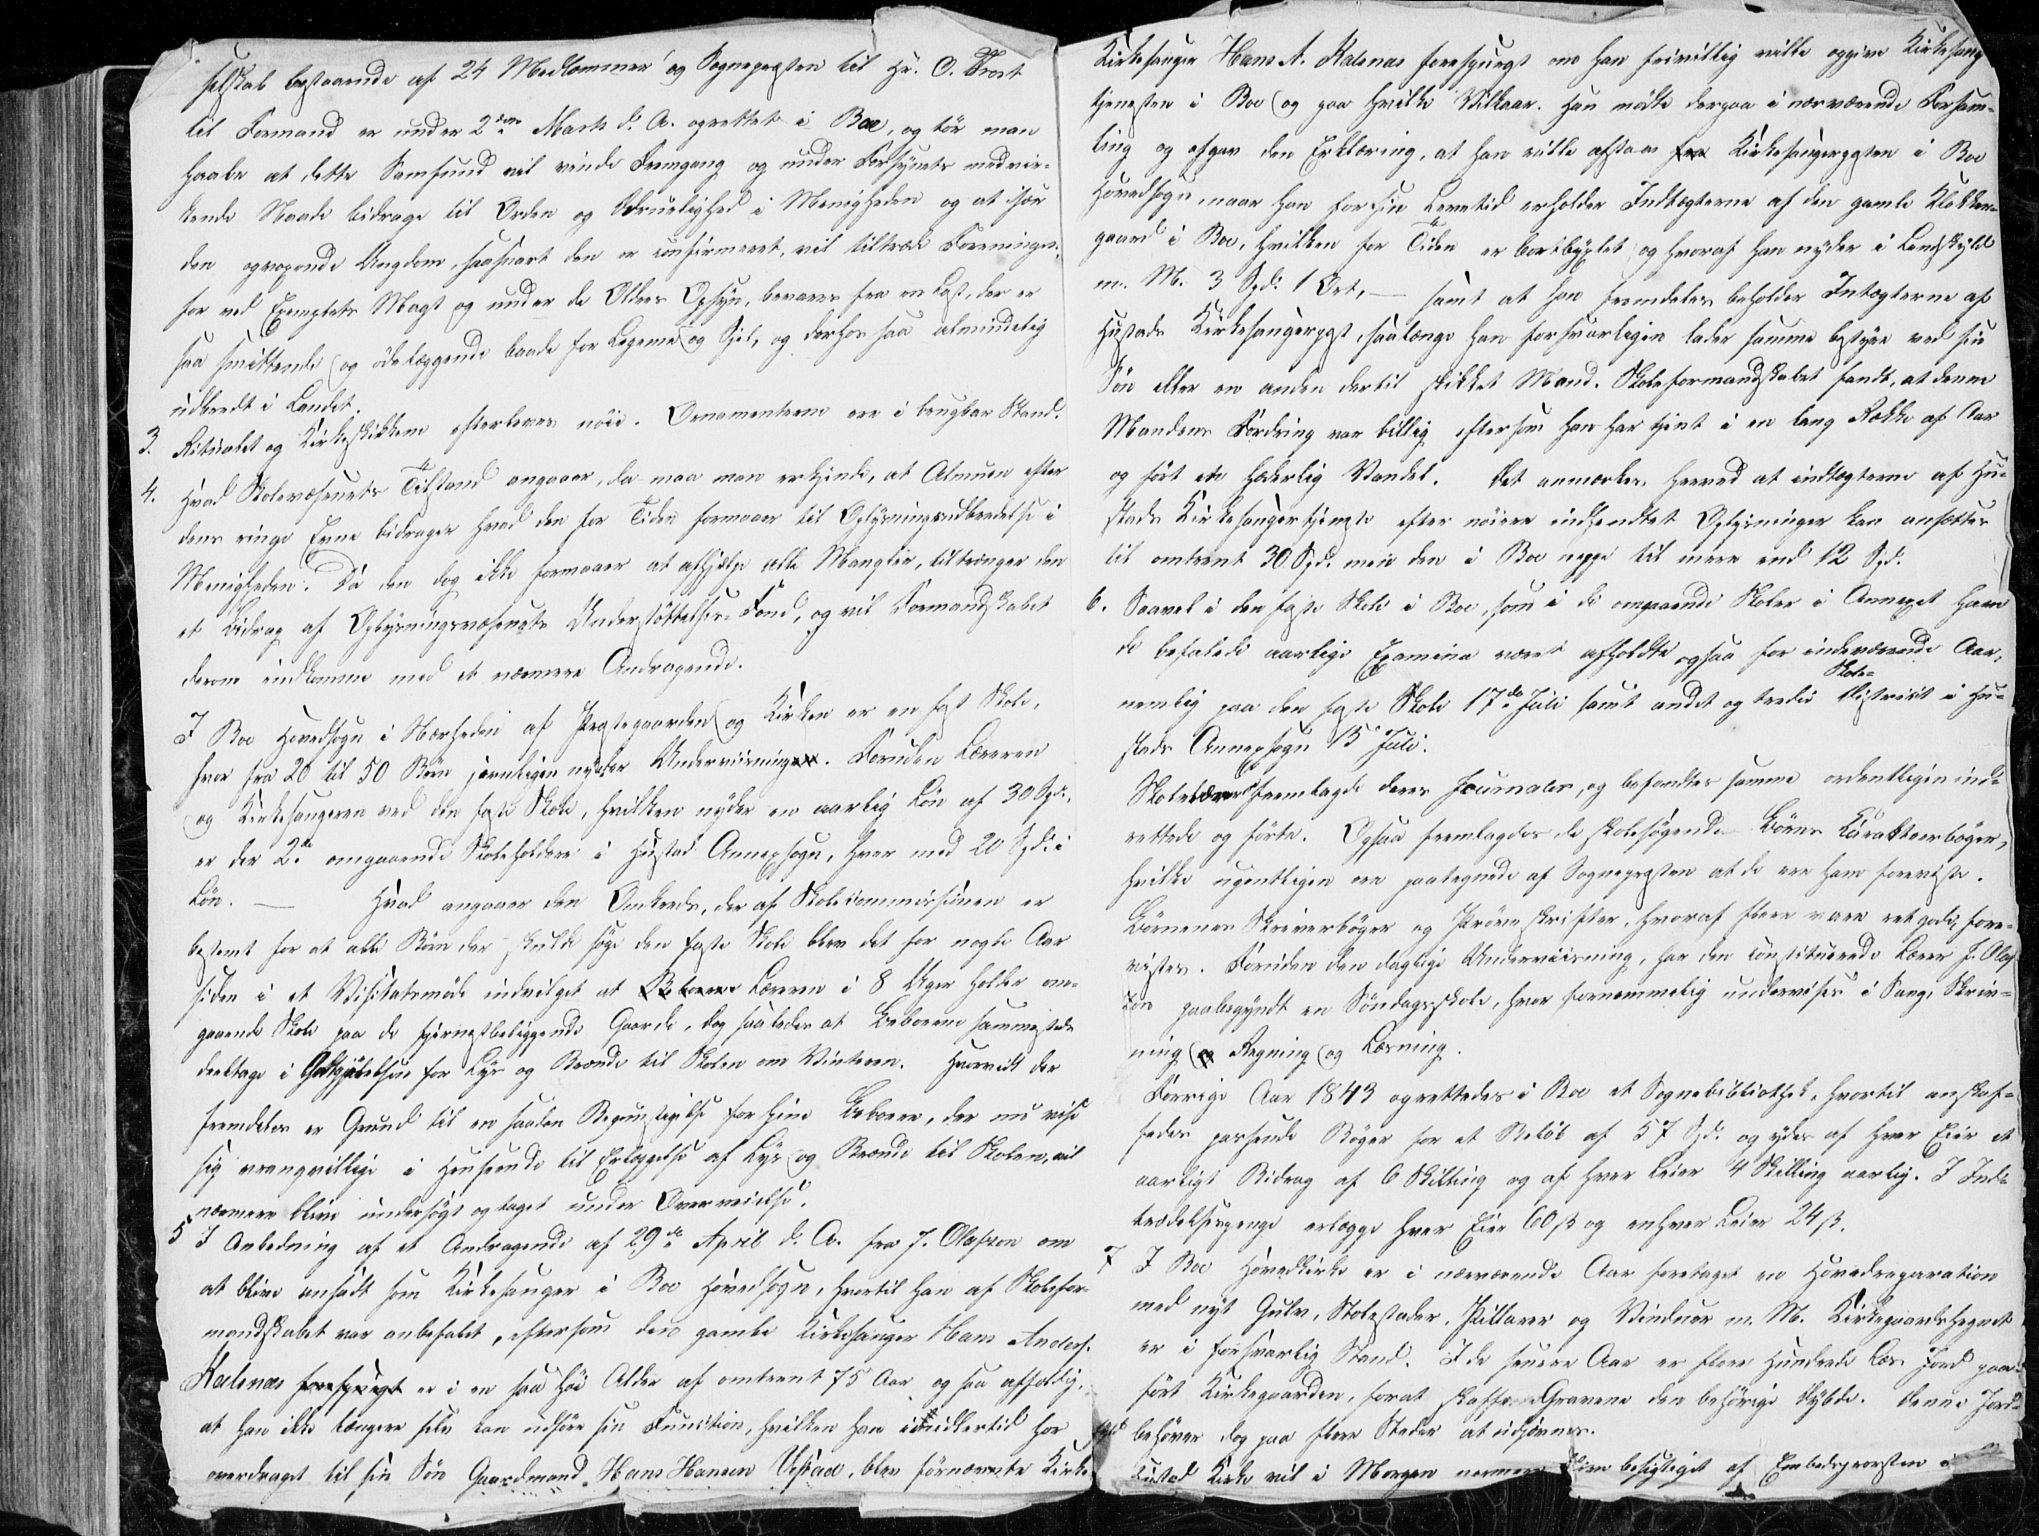 selskab bestaaende af 24 Medlemmer og Sognepresten til Hr. O.
til Formand er under 2den Marts d. A. oprettet i Boe, og tör man
haabe at dette Samfund vil vinde Fremgang og under Forsynets medvir-
kende Naade bidrage til Orden og Ædruelighed i Menigheden og at især
den opvoxende Ungdom, saasnart den er confirmeret, vil tiltræde Foreningen,
for ved Exemplets Magt og under de Ældres Opsyn, bevares fra en Last, der er
saa smittende og ödelæggende baade for Legeme og Sjel, og derhos saa almindelig
udbredt i Landet.
3. Ritualet og Kirkeskikkene efterleves nöie. Ornamenterne ere i brugbar Stand.
4. Hvad Skolevæsenets Tilstand angaaer, da maa man erkjende, at Almuen efter
dens ringe Evne bidrager hvad den for Tiden formaaer til Oplysningsudbredelse i
Menigheden. Da den dog ikke formaaer at afhjelpe alle Mangler, tiltrænger den
et Bidrag af Oplysningsvæsenets Understöttelses-Fond, og vil Formandskabet
derom indkomme med et nærmere Andragende.
I Boe Hovedsogn i Nærheden af Prestegaarden og Kirken er en fast Skole,
hvor fra 20 til 50 Börn jevnligen nyder Underviisning. Foruden Læreren
og Kirkesangeren ved den faste Skole, hvilken nyder en aarlig Lön af 30 Spd.,
er der 2de omgaaende Skoleholdere i Hustad Annexsogn, hver med 20 Spd. i
Lön. — Hvad angaaer den Omkreds, der af Skolecommissionen er
bestemt for at alle Börn der skulde söge den faste Skole blev det for nogle Aar
siden i et Visitatsmöde indvilget at Læreren i 8 Uger holder om-
gaaende Skole paa de fjernestbeliggende Gaarde, dog saaledes at Beboerne sammesteds
deeltage i Godtgjörelsen for Lys og Brænde til Skolen om Vinteren. Hvorvidt der
fremdeles er Grund til en saadan Begunstigelse for hine Beboere, der nu vise
sig vrangvillige i Henseende til Erlæggelse af Lys og Brænde til Skolen, vil
nærmere blive undersögt og taget under Overveielse.
5 I Anledning af et Andragende af 29de April d. A. fra J. Olafson om
at blive ansadt som Kirkesanger i Boe Hovedsogn, hvortil han af Skolefor-
mandskabet var anbefalet, eftersom den gamle Kirkesanger Hans Anders.
Kalsnæs forespurgt er i en saa höi Alder af omtrent 75 Aar og saa affældig,
at han ikke længere selv kan udföre sin Function, hvilken han imidlertid har
overdraget til sin Sön Gaardmand Hans Hansen Vestad, blev förnævnte Kirke-
Kirkesanger Hans A. Kalsnæs forespurgt om han frivillig vilde opgive Kirkesang
tjenesten i Boe og paa hvilke Vilkaar. Han mödte derpaa i nærværende Forsam-
ling og afgav den Erklæring, at han vilde afstaae fra Kirkesangerposten i Boe
Hovedsogn, naar han for sin Levetid erholder Indtægterne af den gamle Klokker-
gaard i Boe, hvilken for Tiden er bortbyxlet og hvoraf han nyder i Landskyld
m. M. 3 Spd. 1 Ort, — samt at han fremdeles beholder Intægterne af
Hustads Kirkesangerpost, saalænge han forsvarligen lader samme bestyre ved sin
Sön eller en anden dertil skikket Mand. Skoleformandskabet fandt, at denne
Mandens Fordring var billig eftersom han har tjent i en lang Række af Aar
og fört en hæderlig Vandel. Det anmærkes herved at indtægterne af Hu-
stads Kirkesangertjeneste efter nöiere indhendtet Oplysninger kan ansættes
til omtrent 30 Spd. men den i Boe neppe til mere end 12 Spd.
6. Saavel i den faste Skole i Boe, som i de omgaaende Skoler i Annexet have
de befalede aarlige Examina været afholdte ogsaa for indeværende Aar,
nemlig paa den faste Skole 17de Juli samt andet og tredie Skole-District i Hu-
stads Annexsogn 15 Juli.
Skolelærerne fremlagde deres Journaler, og befandtes samme ordentligen ind-
rettede og förte. Ogsaa fremlagdes de skolesögende Börns Karakteerböger,
hvilke ugentligen ere paategnede af Sognepresten at de ere ham foreviste.
Börnenes Skriverböger og Pröveskrifter, hvoraf flere vare ret gode, fore-
vistes. Foruden den daglige Underviisning, har den constituerede Lærer J. Olaf
son paabegyndt en Söndagsskole, hvor fornemmelig undervises i Sang, Skriv-
ning og Regning og Læsning.
Forrige Aar 1843 oprettedes i Boe et Sognebibliothek, hvortil anskaf-
fedes passende Böger for et Belöb af 57 Spd. og ydes af hver Eier et
aarligt Bidrag af 6 Skilling og af hver Leier 4 Skilling aarlig. I Ind-
trædelsespenge erlægge hver Eier 60 ß og enhver Leier 24 ß.
7 I Boe Hovedkirke er i nærværende Aar foretaget en Hovedreparation
med nyt Gulv, Stolestader, Pillarer og Vinduer m. M. Kirkegaardshegnet
er i forsvarlig Stand. I de senere Aar er flere Hundrede Læs Jord paa-
fört Kirkegaarden, forat skaffe Gravene den behörige Dybde. Denne Jord-
fyld behöver dog paa flere Steder at udjevnes.
Hustad Kirke vil i Morgen nærmere blive besigtiget af Embedsprovsten i